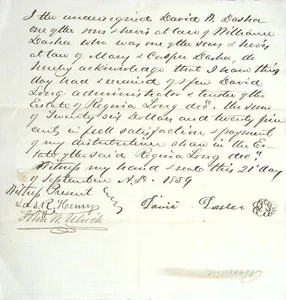 I the undersigned David M. Dasher
one of the sons & heirs at law of William
Dasher who was one of the sons & heirs
at law of Mary & Casper Dasher, do
hereby acknowledge that I have this
day had & received of & from David
Long administrator & trustee of the
Estate of Regina Long decd. the sum
of Twenty six Dollars and twenty five
cents in full satisfaction & payment
of my distributive share in the Es-
tate of the said Regina Long decd.
Witness my hand & seal this 21st day
of September A.D. 1859
Witness Present
David Dasher
John W. Ulrich